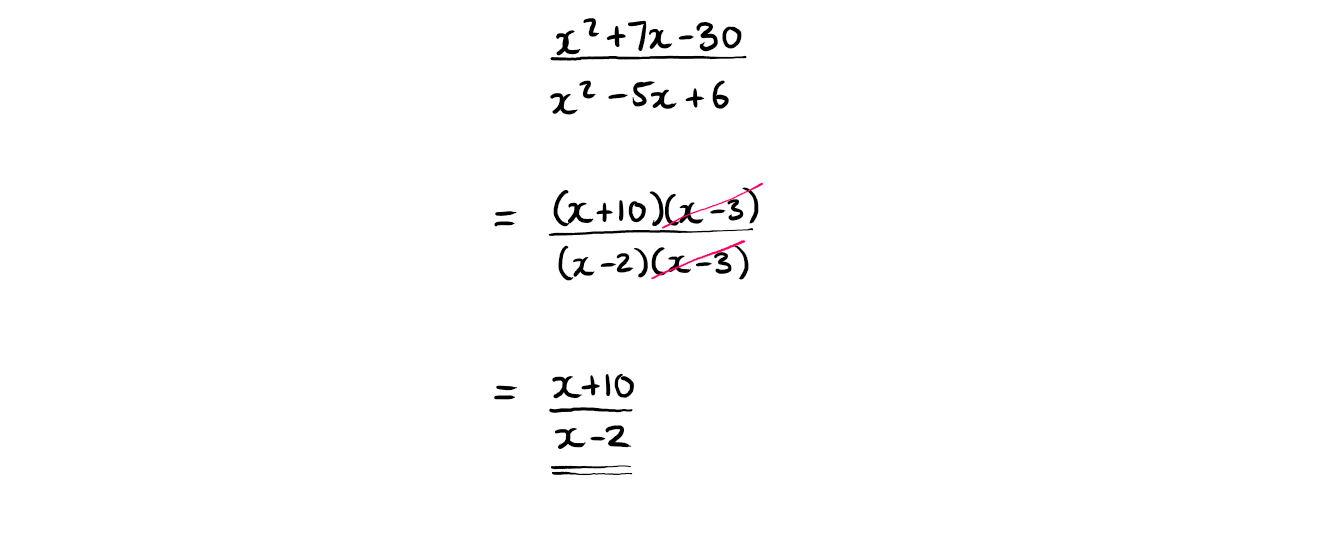 x²+7x-30
x²-5x+6
= (x+10)(x-3)
(x-2)(x-3)
= x+10
x-2